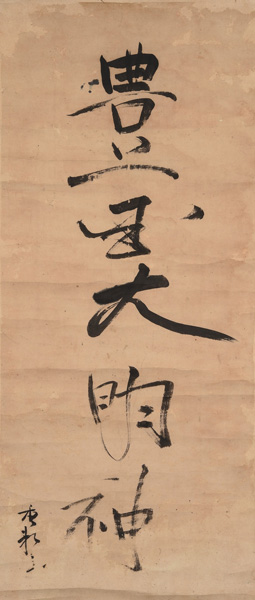 豊国大明神